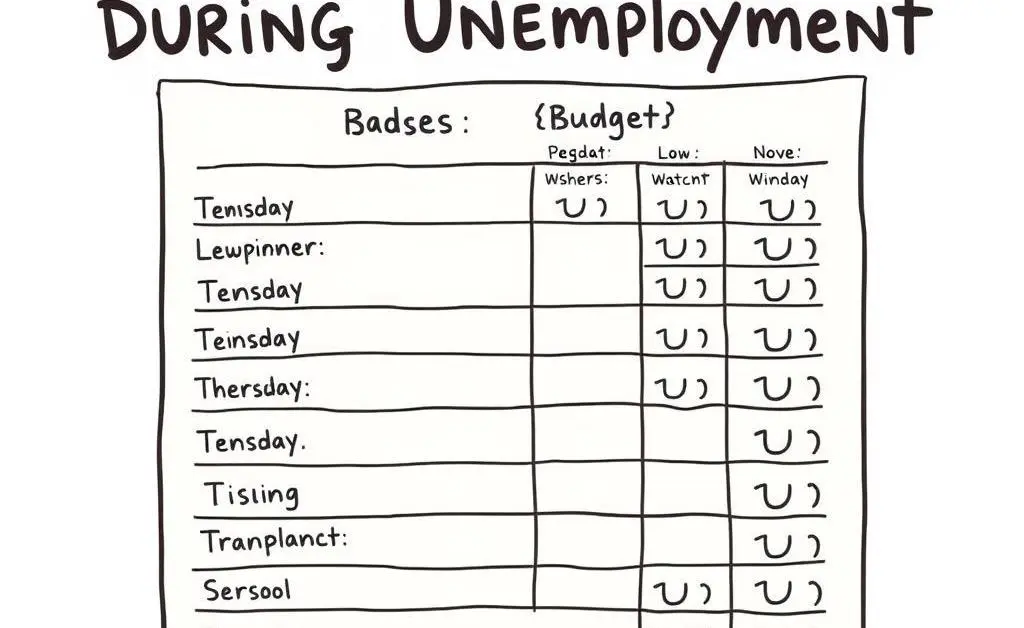 DURING UNEMPLOYMENT
Badses: {Budget}
Pegdat: Low: Nove:
Wshers: Watcnt Winday
Temsday
Lewpinner:
Tensday
Teinsday
Thersday:
Tensday.
Tisling
Tranplanct:
Sersool